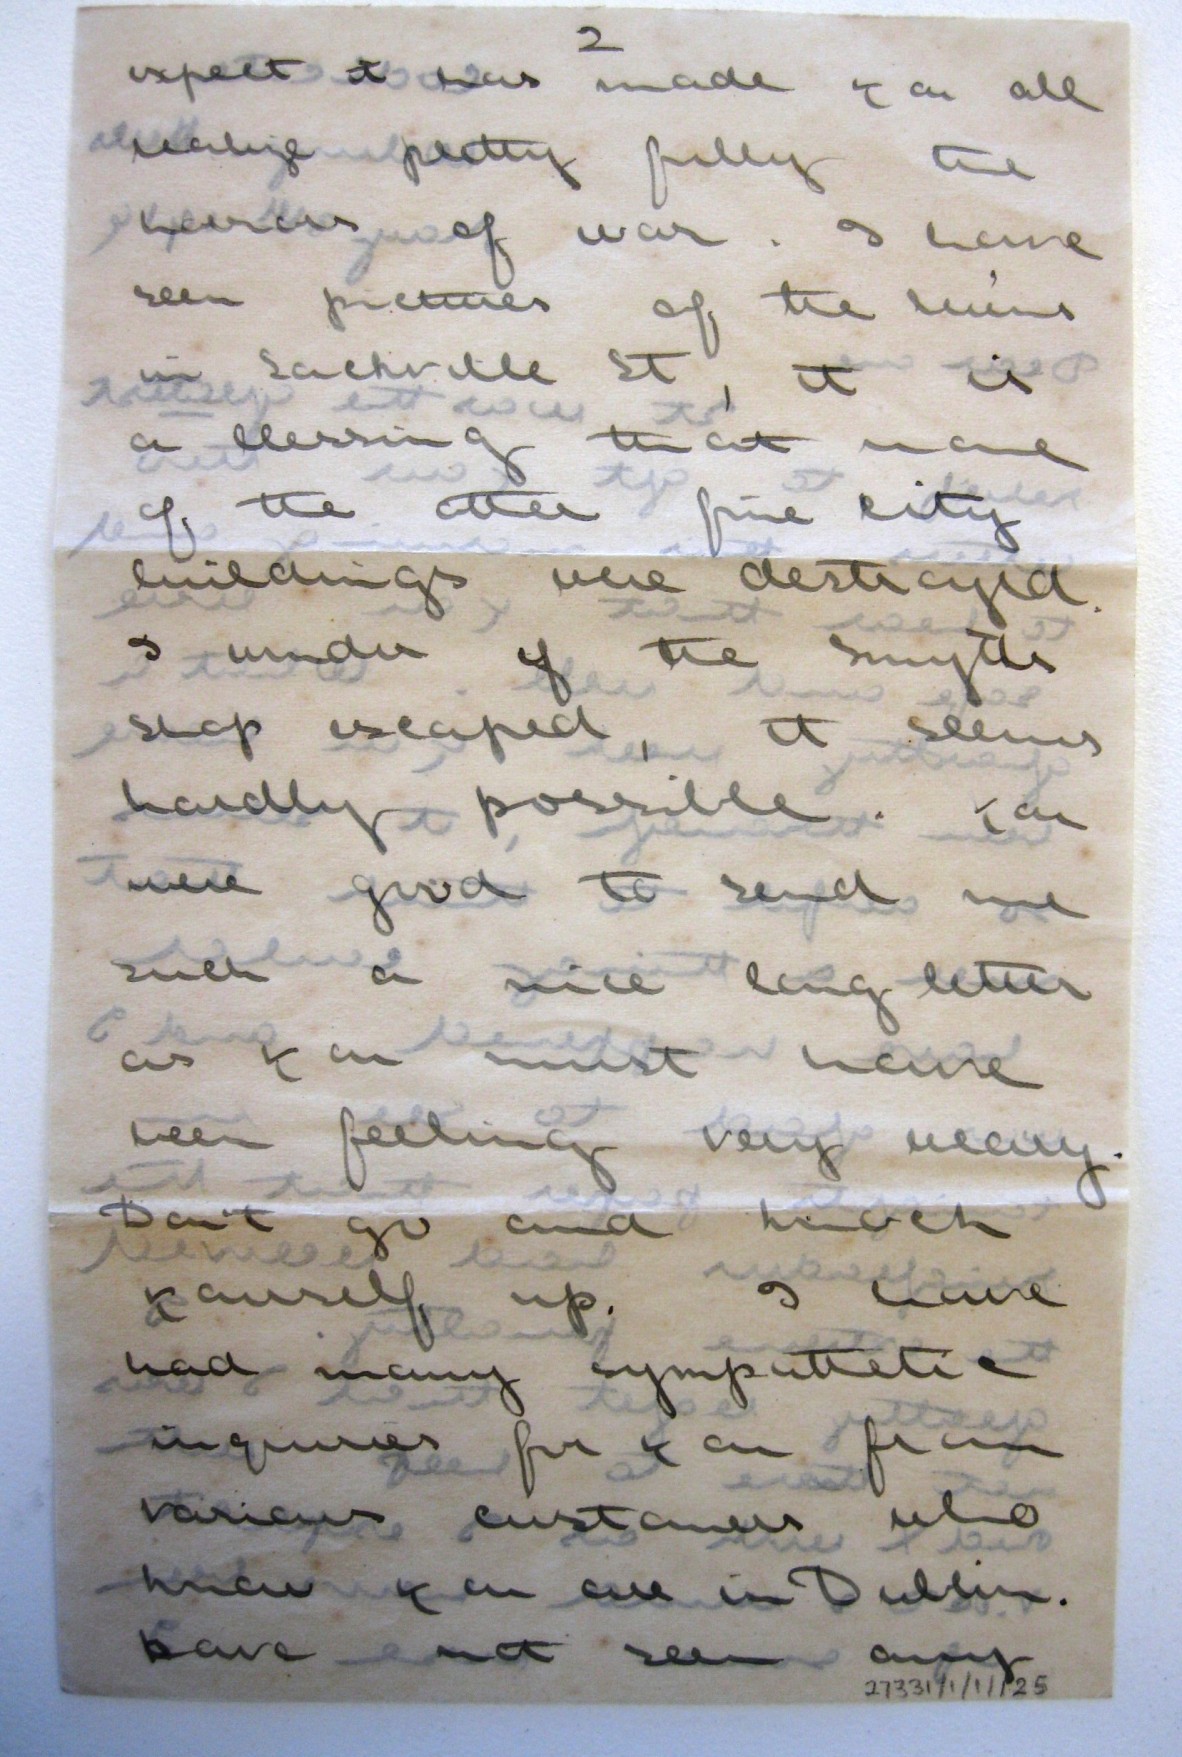 2
expect it has made you all
realize pretty fully the
horrors of war. I have
seen pictures of the ruins
in Sackville St, it is
a blessing that none
of the other fine city
buildings were destroyed.
I wonder if the Smyths
shop escaped, it seems
hardly possible. You
were good to send me
such a nice long letter
as you must have
been feeling very weary.
Don't go and knock
yourself up. I have
had many sympathetic
inquiries for you from
various customers who
know you are in Dublin.
Have not seen any
27331/1/1/125